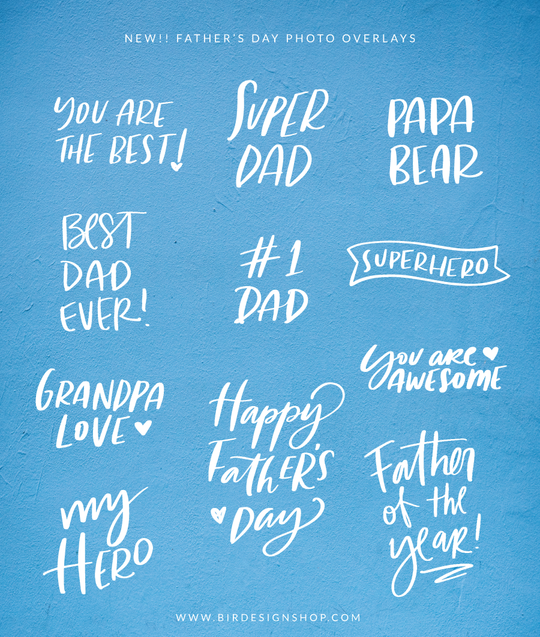 NEW!! FATHER'S DAY PHOTO OVERLAYS
YOU ARE
THE BEST!
SUPER
DAD
PAPA
BEAR
BEST
DAD
EVER!
#1
DAD
SUPERHERO
You are
AWESOME
GRANDPA
LOVE
Happy
FATHER'S
Day
Father
of the
year!
my
HERO
WWW.BIRDESIGNSHOP.COM